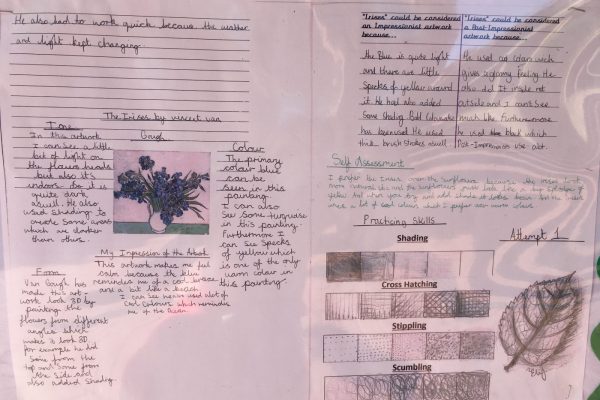 He also had to work quick because the weather
and light kept changing.
The Irises by vincent van
Gough
Tone
In this artwork
I can see a little
bit of light on
the flowers heads
but also it's
indoors. So it is
quite dark
aswell. He also
used shading to
create some areas
which are darker
than others.
Colour
The primary
colour blue
can be
seen in this
painting.
I can also
see some turquoise
in this painting.
Furthermore I
can see specks
of yellow which
is one of the only
warm colour in
this painting
My Impression of the Artwork
This artwork makes me feel
calm because the blue
reminds me of a cool breeze
and a bit like a
I can see he has used alot of
Cool Colours which reminds
me of the Ocean.
Form
Van Gough has
made this art-
work look 3D by
painting the
flowers from different
angles which
makes it look 3D
for example he did
some from the
top and some from
the side and
also added shading.
"Irises" could be considered
an Impressionist artwork
because...
the Blue is quite light
and there are little
specks of yellow around
also. He had also added
some shading. Bold Colours
has been used. He used
thick brush strokes aswell.
"Irises" could be considered
a Post-Impressionist
artwork because...
He used colours which
gives a gloomy feeling. He
also did it inside not
outside and I can't see
much light. Furthermore
he used black which
Post-Impressionists use alot.
Self Assessment
I prefer the Irises over the sunflowers because the irises look
more natural and the sunflowers just look like a big splodge of
yellow. And when you try and add shade it looks
once a lot of cool colours which I prefer over warm colours.
Practicing Skills
Shading
Cross Hatching
Stippling
Scumbling
Attempt 1